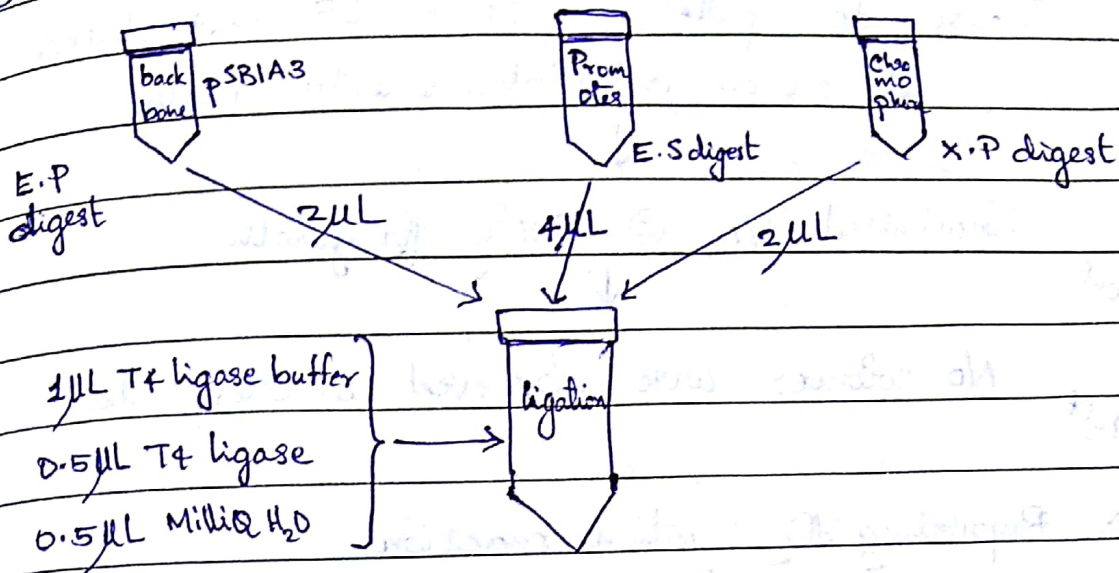 back
bone
pSB1A3
Prom
oter
Chro
mo
phore
E.P
digest
E.S digest
X.P digest
2µL
4µL
2µL
1µL T4 ligase buffer
0.5µL T4 ligase
0.5µL MilliQ H₂O
ligation